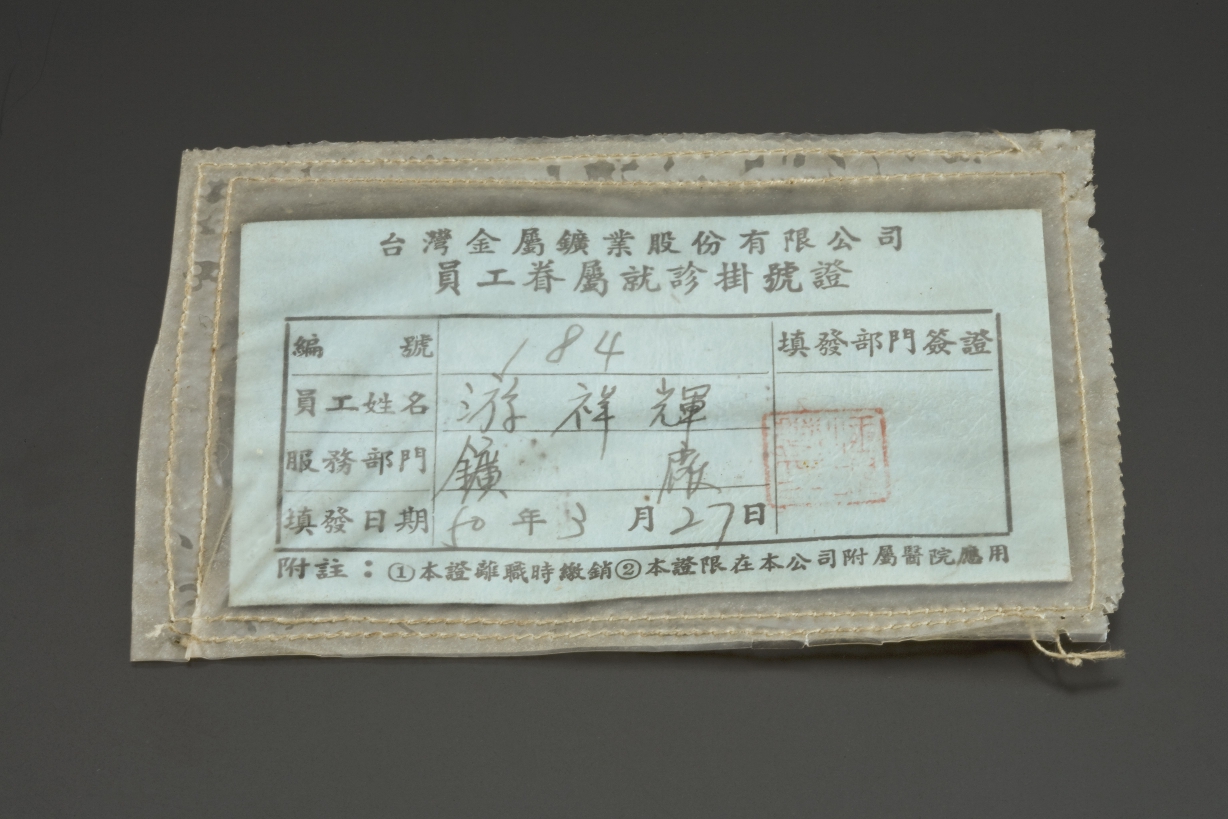 台灣金屬鑛業股份有限公司
員工眷屬就診掛號證
編號 184 填發部門簽證
員工姓名 游祥輝
服務部門 鑛廠
填發日期 50年3月27日
附註：①本證離職時繳銷②本證限在本公司附屬醫院應用